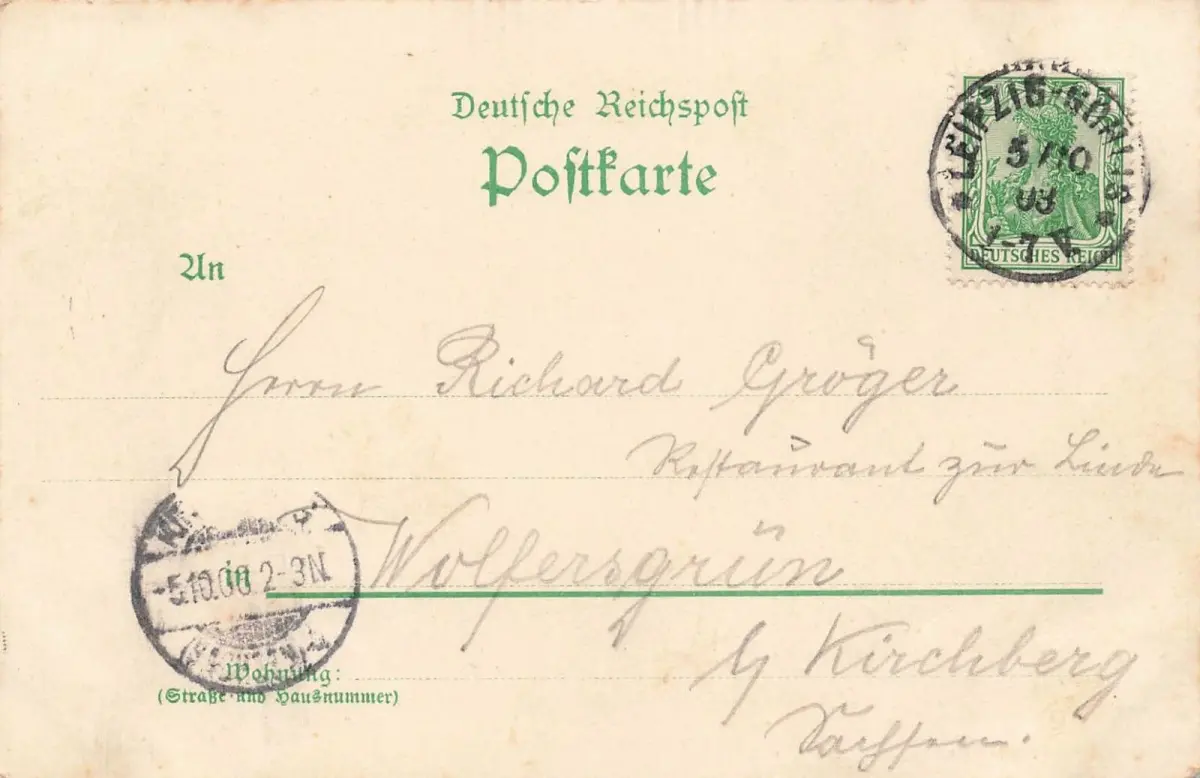 Deutsche Reichspost
Postkarte
LEIPZIG-GOHLIS
5/10
7 V.
DEUTSCHES REICH
An
Herrn Richard Gröger
Restaurant zur Linde
5.10.0 2-3N.
in Wolfersgrün
b/ Kirchberg
(SACHSEN)
Wohnung:
(Straße und Hausnummer)
Sachsen.